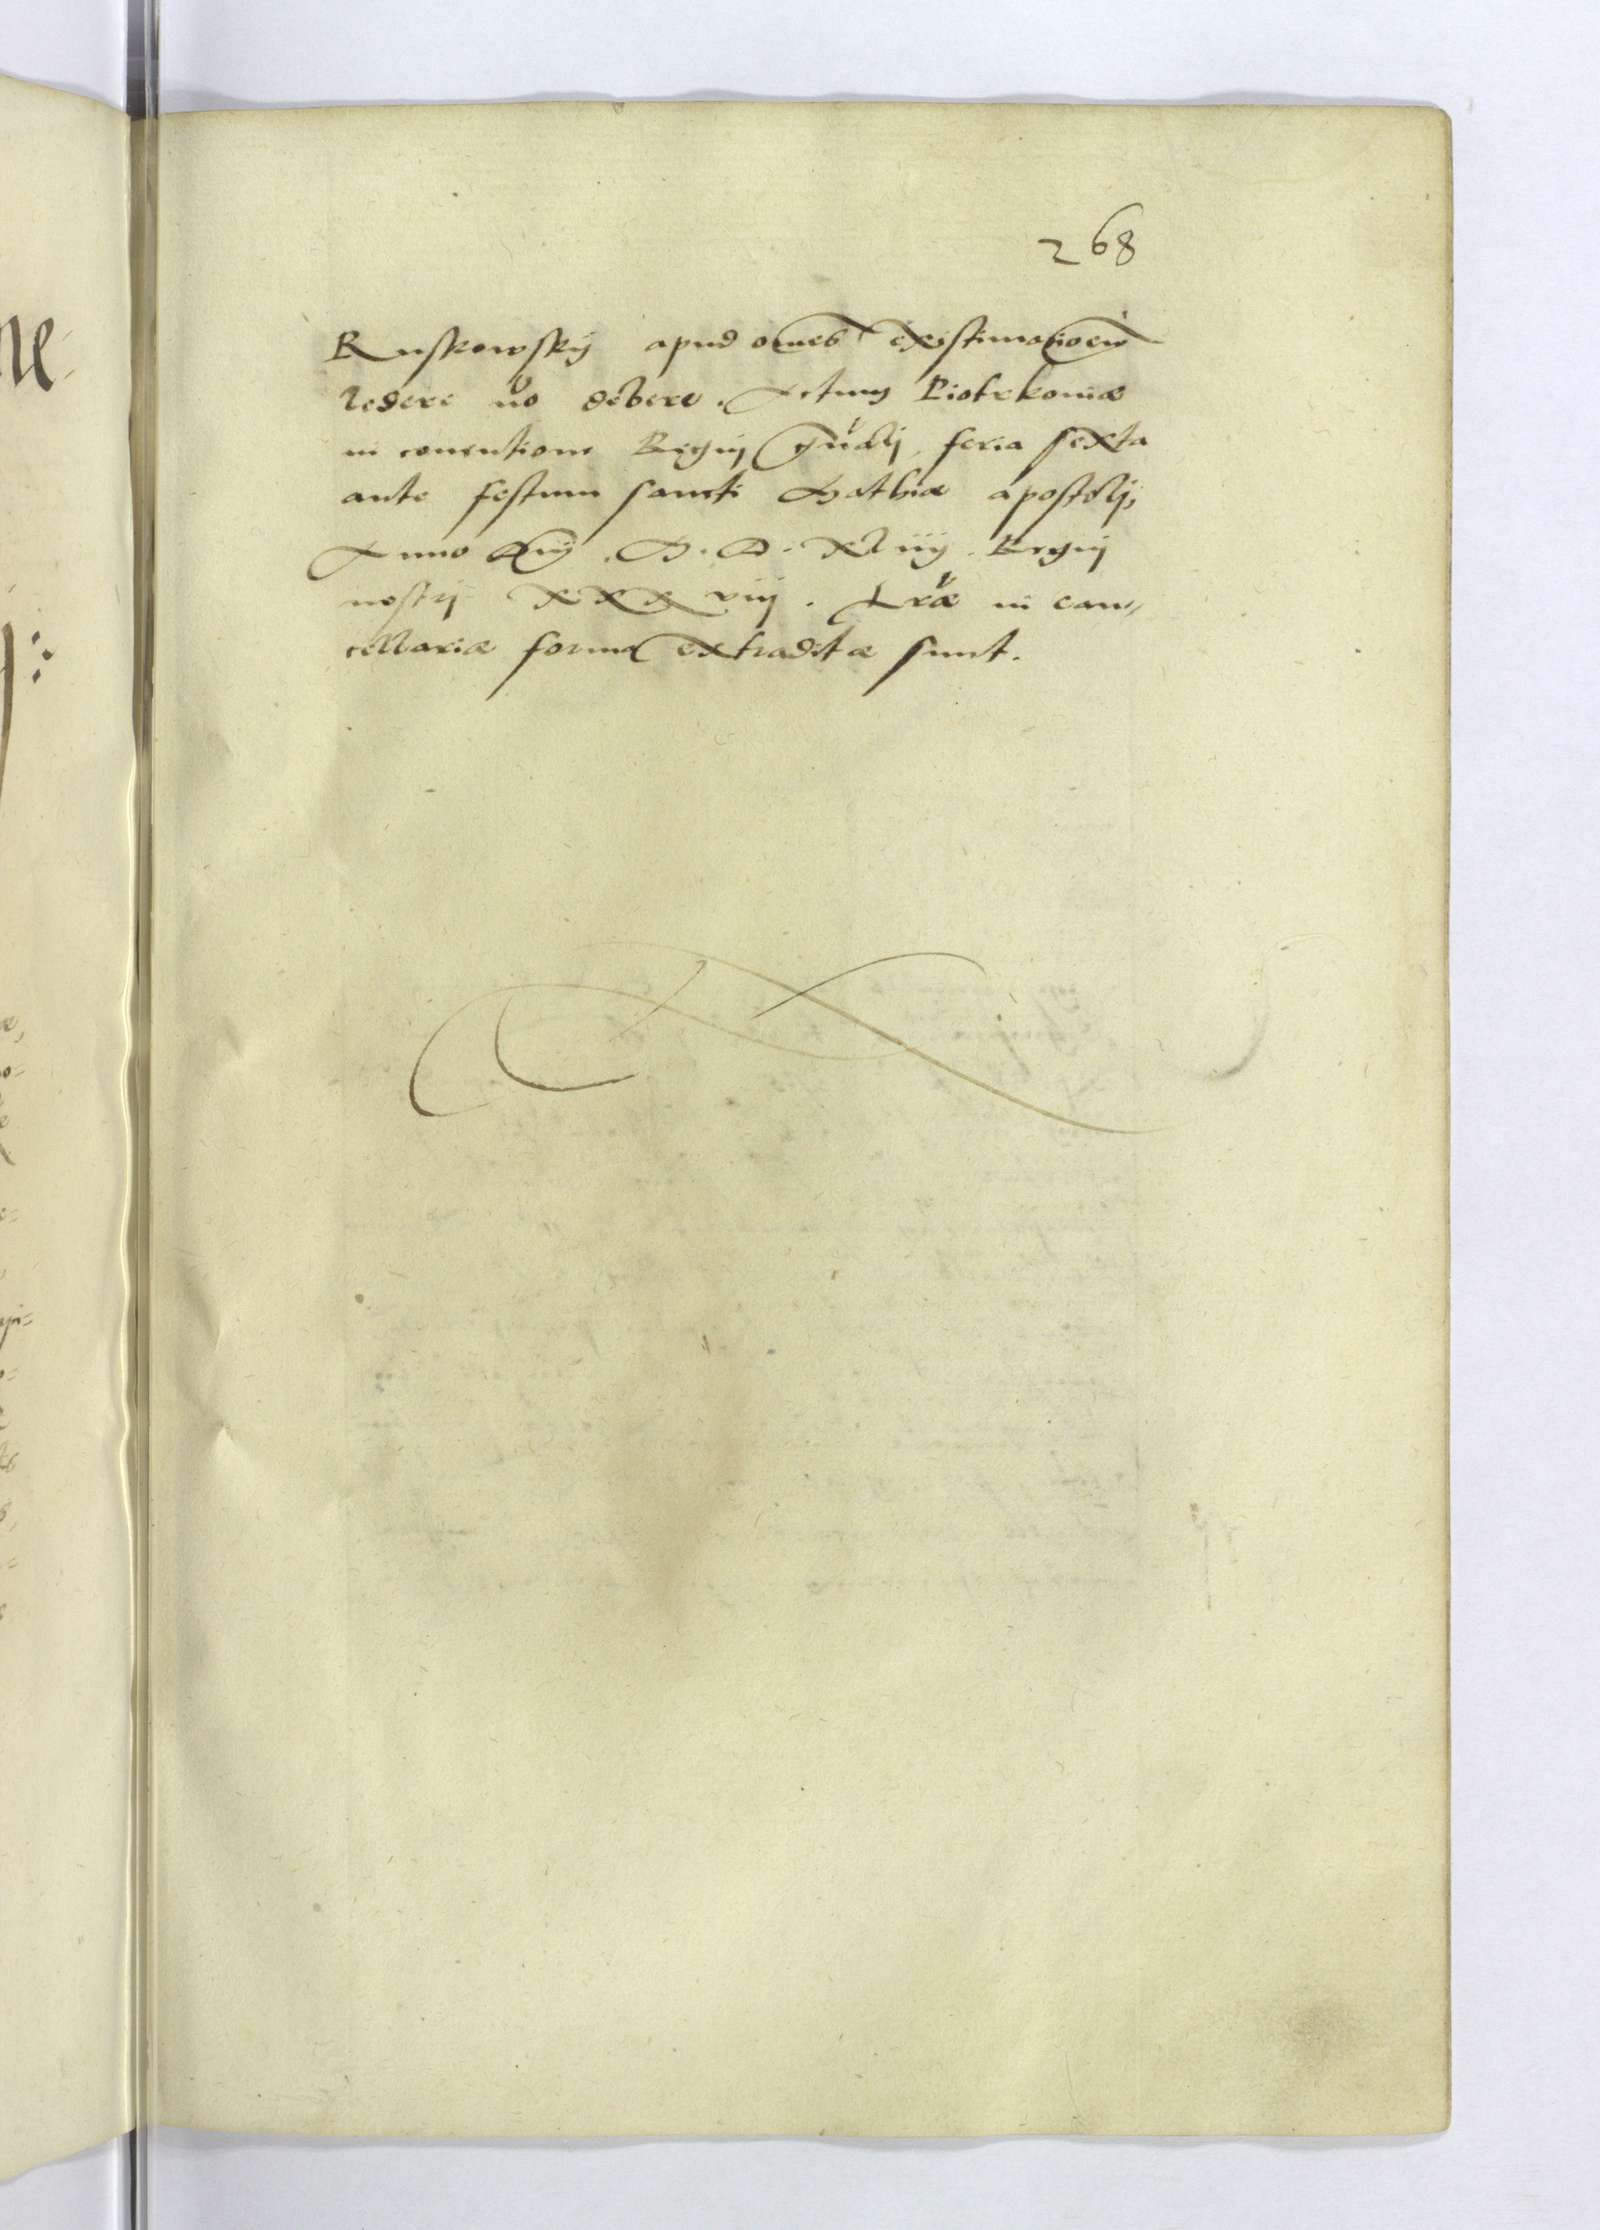 268
Ruskowsky apud omes existimacioem
ledere no debere. Actum Piotrkoviæ
in conventione Regnj gnalj, feria sexta
ante festum sancti Mathiæ apostolj,
Anno Dnj. M. D. XLiiij. Regnj
nostrj XXX viij. Lræ in can„
cellariæ forma extraditæ sunt.